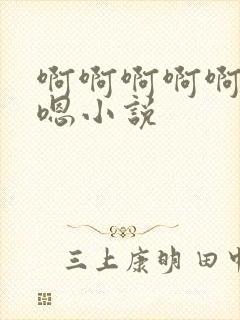 啊啊啊啊啊
嗯小说
三上康明 田中